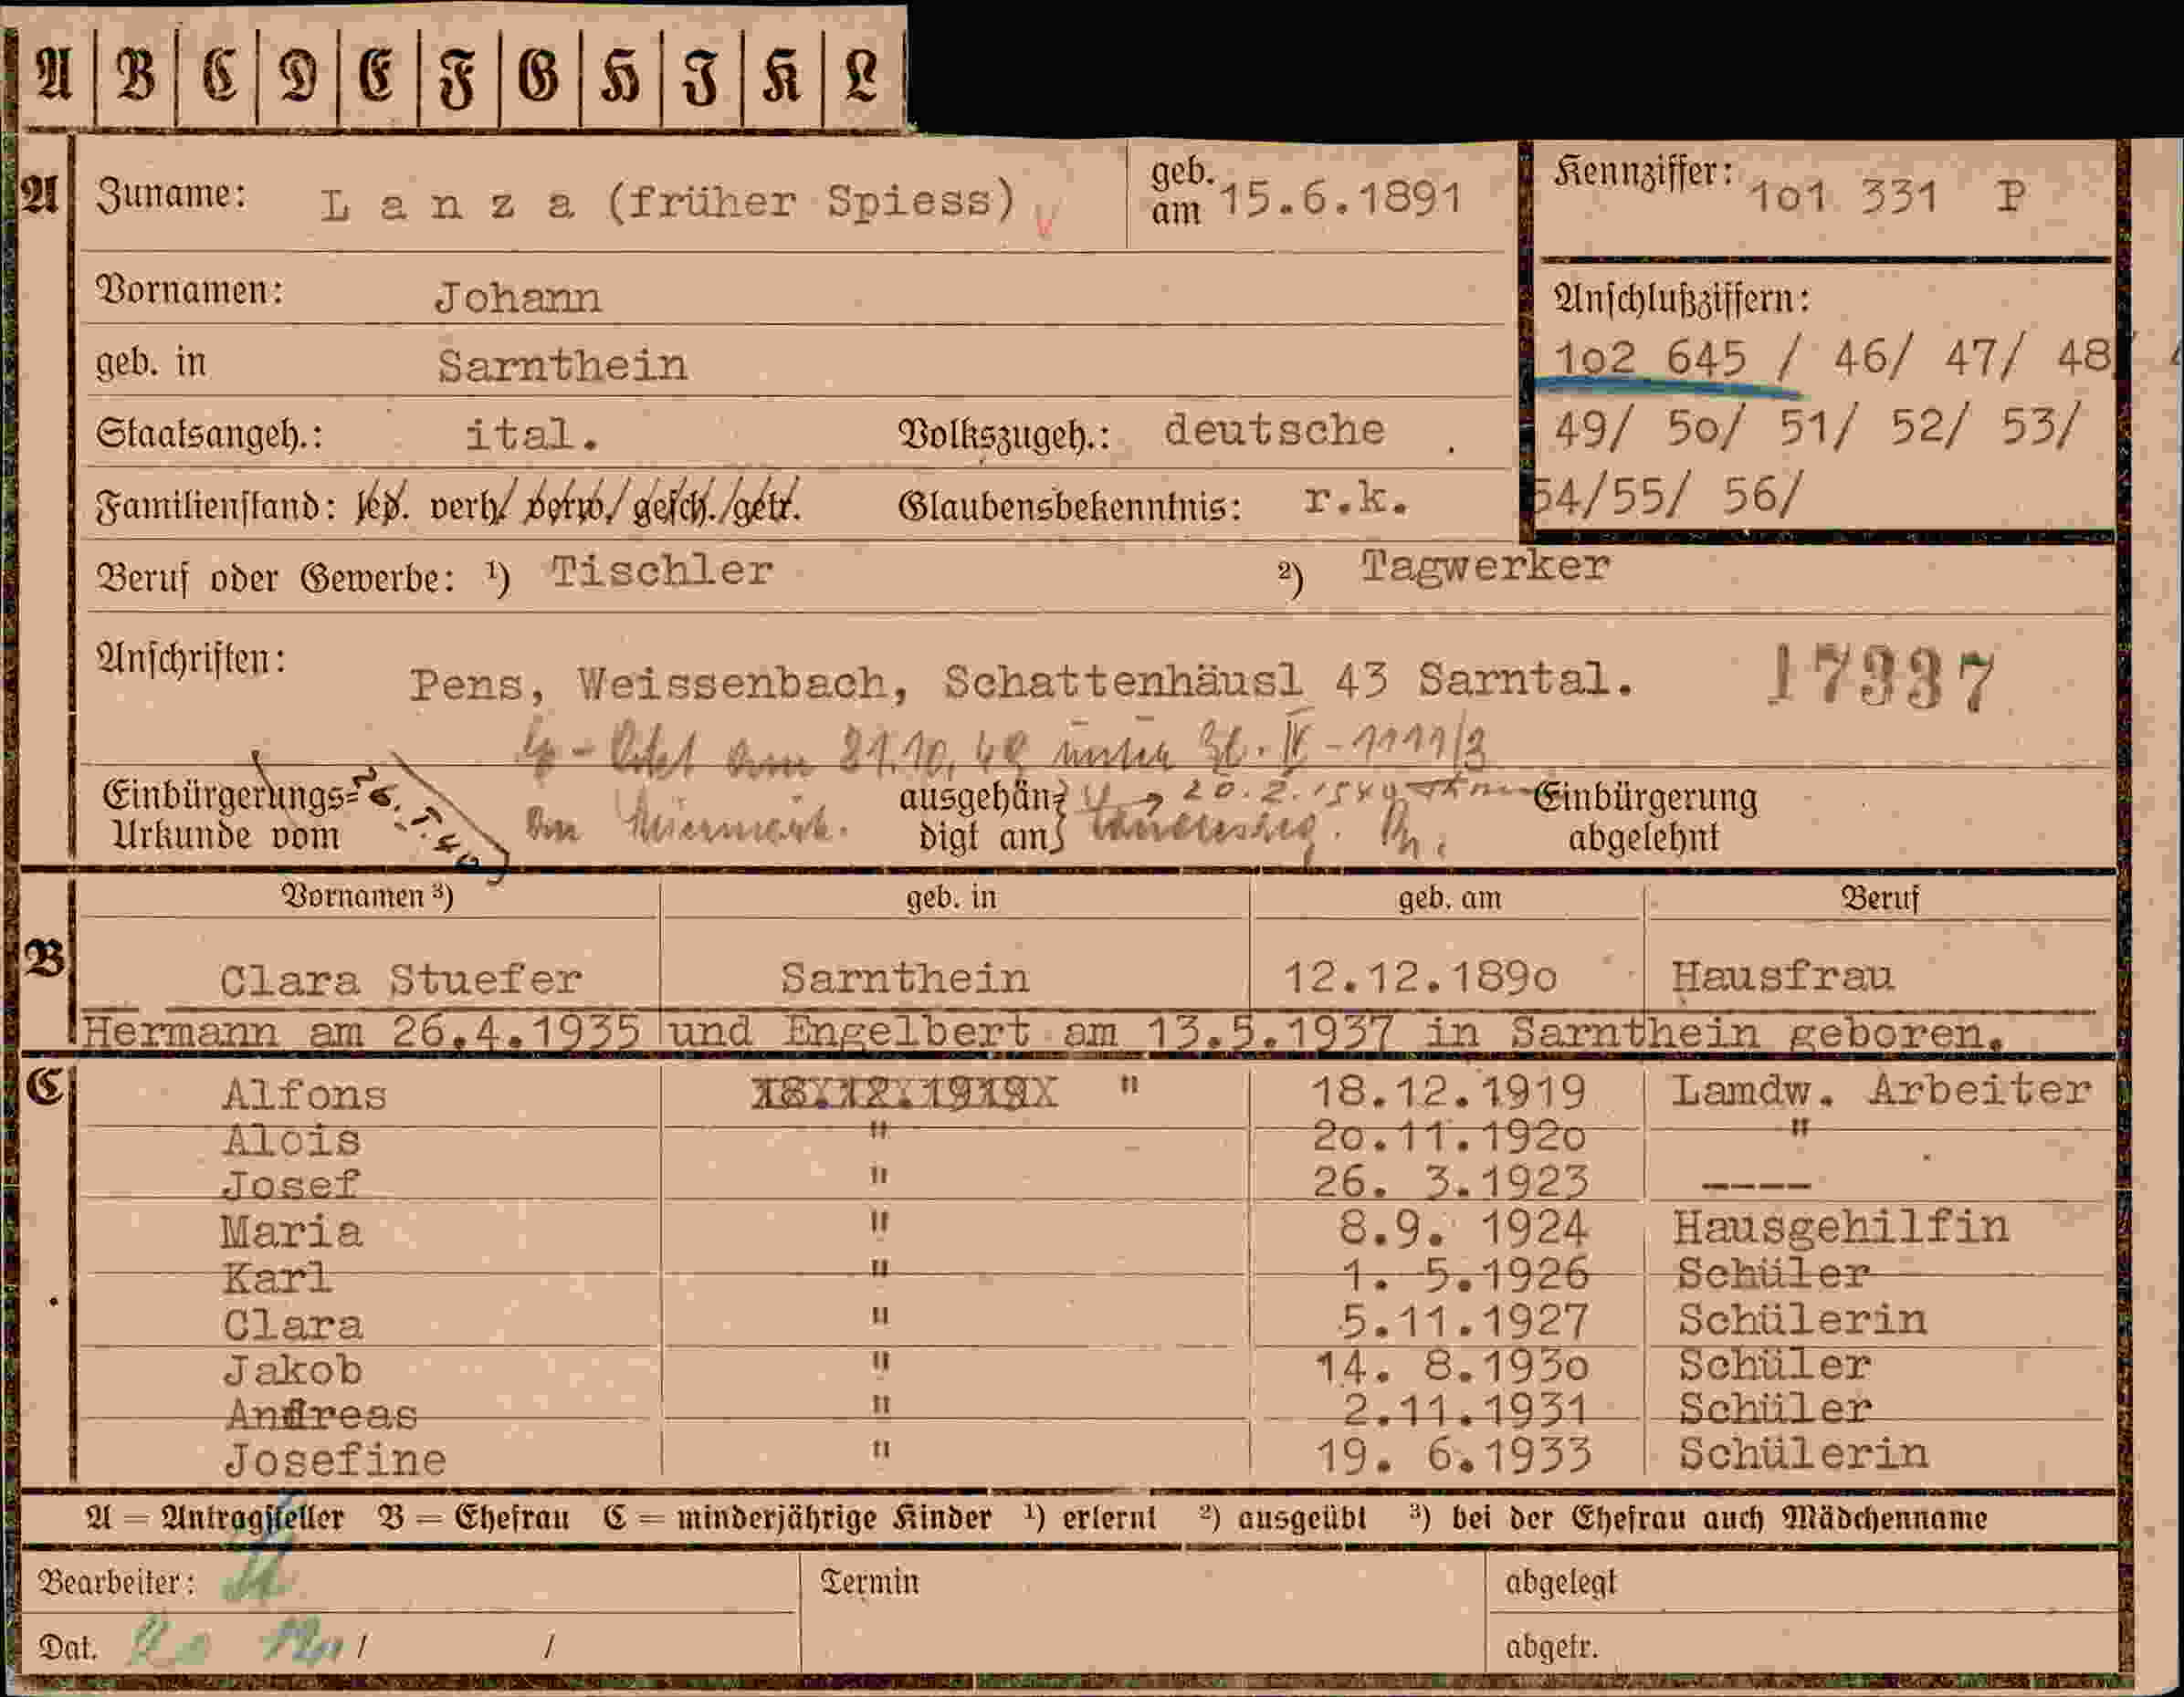 A | B | C | D | E | F | G | H | J | K | L
A Zuname: Lanza (früher Spiess) geb. am 15.6.1891 Kennziffer: 1o1 331 P
Vornamen: Johann Anschlußziffern:
geb. in Sarnthein 1o2 645 / 46/ 47/ 48
Staatsangeh.: ital. Volkszugeh.: deutsche . 49/ 5o/ 51/ 52/ 53/
Familienstand: led. verh/ verw./ gesch./getr. Glaubensbekenntnis: r.k. 54/55/ 56/
Beruf oder Gewerbe: ¹) Tischler ²) Tagwerker
Anschriften: Pens, Weissenbach, Schattenhäusl 43 Sarntal. 17337
am 21.10.42 unter Zl. IV - 1111/3
Einbürgerungs= ausgehän= 20.2. Einbürgerung
Urkunde vom digt am abgelehnt
Vornamen ³) geb. in geb. am Beruf
B Clara Stuefer Sarnthein 12.12.189o Hausfrau
Hermann am 26.4.1935 und Engelbert am 13.5.1937 in Sarnthein geboren.
C Alfons 18.12.1919 " 18.12.1919 Lamdw. Arbeiter
Alois " 2o.11.192o "
Josef " 26. 3.1923 ----
Maria " 8.9. 1924 Hausgehilfin
Karl " 1. 5.1926 Schüler
Clara " 5.11.1927 Schülerin
Jakob " 14. 8.193o Schüler
Andreas " 2.11.1931 Schüler
Josefine " 19. 6.1933 Schülerin
A = Antragsteller B = Ehefrau C = minderjährige Kinder ¹) erlernt ²) ausgeübt ³) bei der Ehefrau auch Mädchenname
Bearbeiter: Termin abgelegt
Dat. / / abgetr.